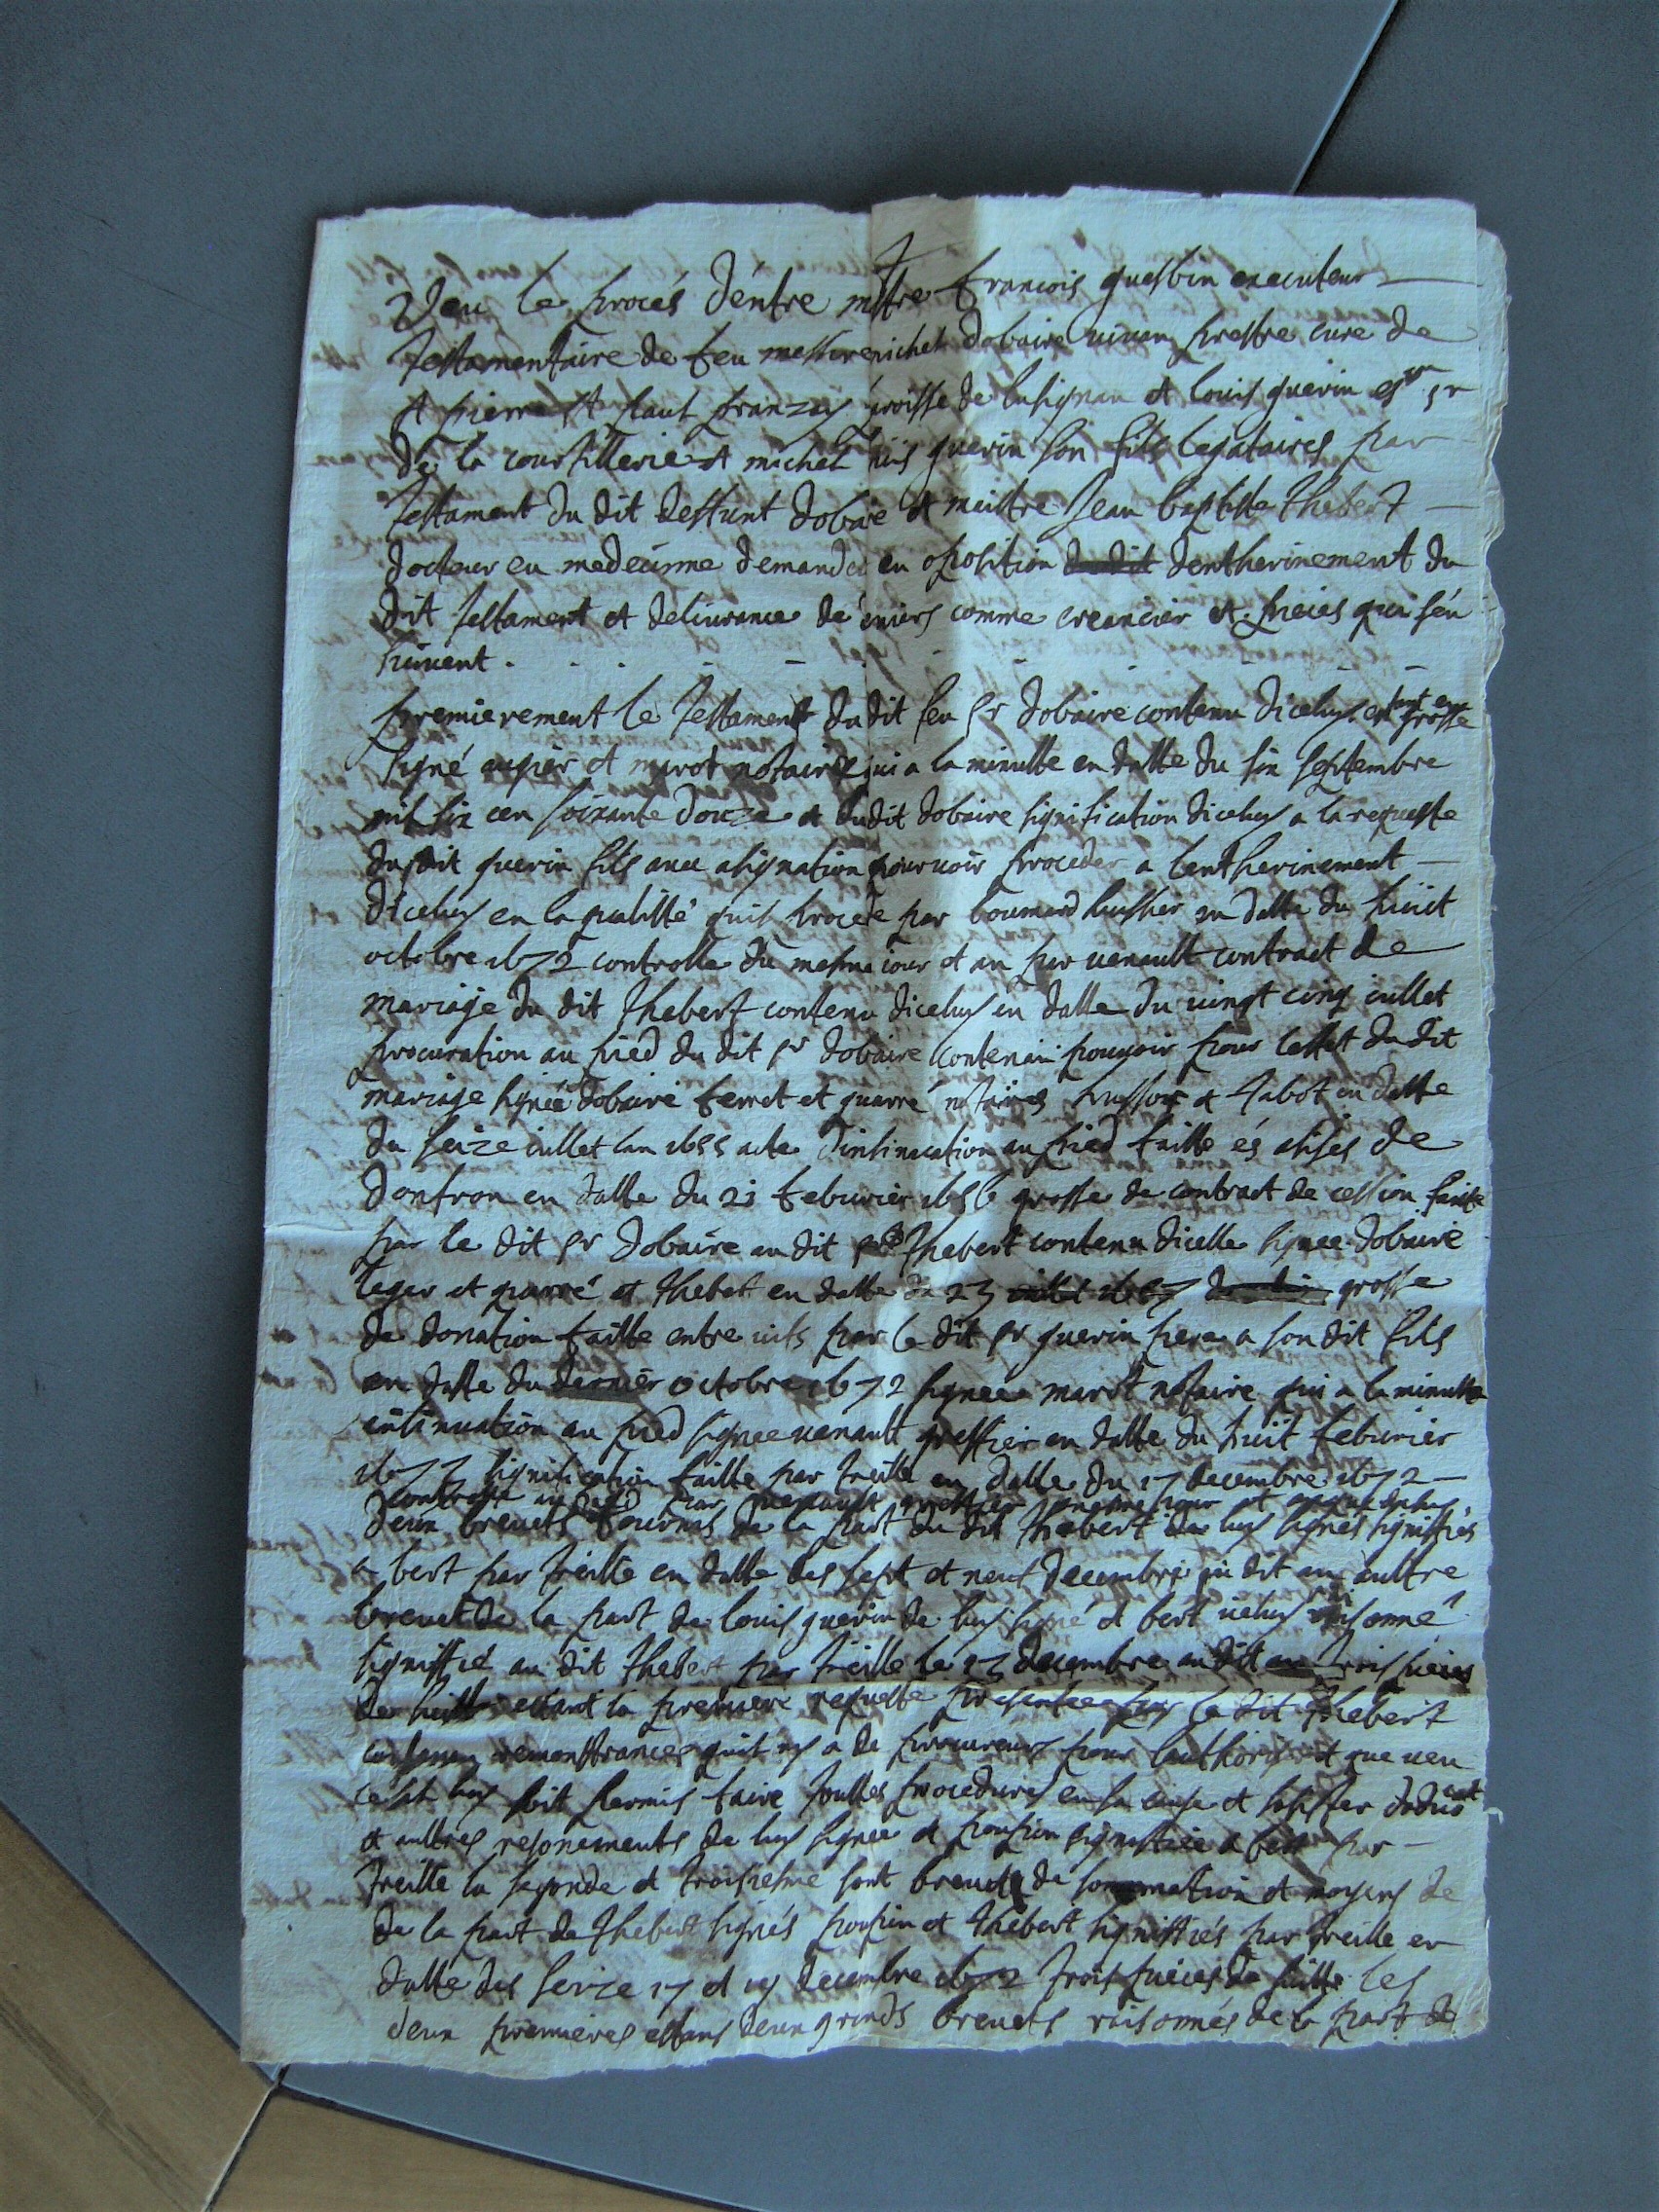 Veu le procés d'éntre mtre francois quesbin executeur
Testamentaire de feu messire michel dobaire uiuan prestre cure de
st pierre st paul franzay proisse de lusignan et louis guerin esr sr
de la courtillerie et michel guerin son fils legataires par
testament du dit deffunt dobaire et maistre Jean baptiste thebert
docteur en medecinne demandeur en oposition dentherinement du
dit testament et deliurance deniers comme creancier et pieces qui sén
suiuent .
premierement le testament du dit feu sr dobaire contenu diceluy est en grosse
signé augier et marot notaires qui a la minutte en datte du six septembre
mil six cen soixante douze et dudit dobaire signification diceluy a la requeste
dudit guerin fils auec asignation pour uoir proceder a lentherinement
diceluy en la qualitté quil procede par boumard huissier en datte du huiit
octobre 1672 controlle du mesme iour et an par uenault contract de
mariage du dit thebert contenu diceluy en datte du uingt cinq iullet
procuration au pied du dit sr dobaire contenant pouuoir pour leffet du dit
mariage signée dobaire ferret et quarré notaires et tabot en datte
du seize iullet lan 1655 acte dintinuation au pied faitte és asises de
donfron en datte du 21 feburier 1656 grosse de contract de cession faite
par le dit sr dobaire au dit thebert contenu dicelle signee dobaire
leger et quarré et thebert en datte du 23 grosse
de donation faitte entre uifs par le dit sr guerin pere a son dit fils
en datte du dernier octobre 1672 signee marot notaire qui a la minutte
intinuation au pied signee uenault greffier en datte du huit feburier
1673 signification faitte par treille en datte du 17 decembre 1672
controlle au pied par uenault greffier mesme iour et an
deux breuets fournis de la part du dit thebert de luy signés signiffiés
a bert par treille en datte des sept et neuf decembre au dit an aultre
breuet de la part de louis guerin de luy signé et bert iceluy raisonné
signiffié au dit thebert par treille le 13 decembre au dit an trois pieces
de suitte estant la premiere requeste presentee par le dit thebert
contenan remonstrances quil ny a de procureurs pour lauthoriser et que ueu
cela luy soit permis faire touttes procedures en sa cause et
et aultres resonements de luy signee et poupin signiffiee a bert par
treille la segonde et troisiesme sont breuets de sommation et moyens de
de la part de thebert signés poupin et thebert signiffiés par treille en
datte des seize 17 et 19 decembre 1672 trois pieces de suitte les
deux premieres estans deux grands breuets raisonnés de la part de